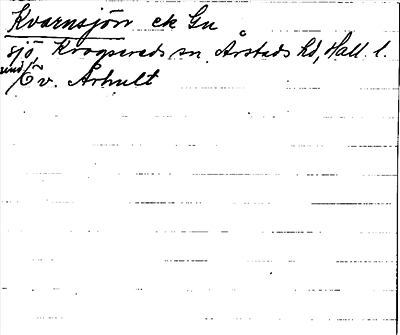 Kvarnsjön ek Gu
sjö, Krogsereds sn Årstads hd, Hall. l.
und/fr
Ö v. Århult